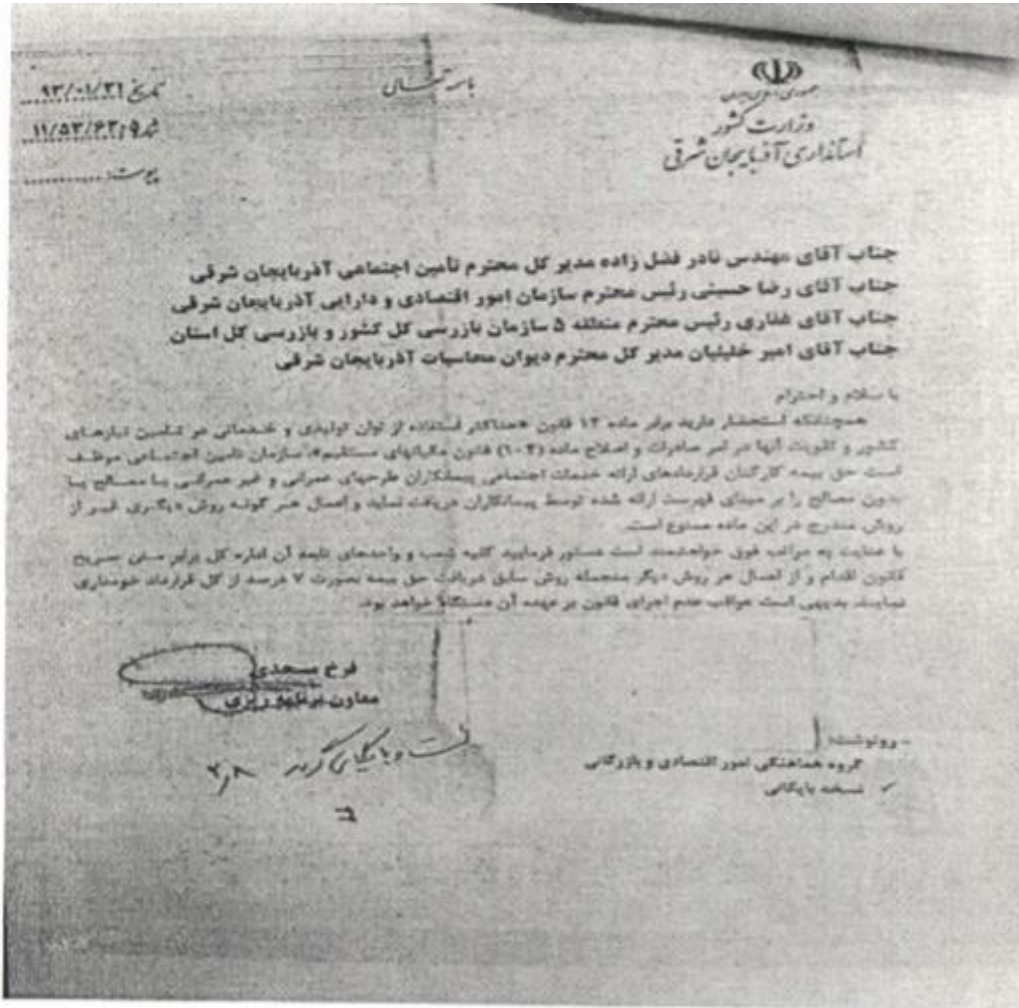 باسمه تعالی
جمهوری اسلامی ایران
وزارت کشور
استانداری آذربایجان شرقی
تاریخ: ۹۳/۰۱/۳۱
شماره: ۱۱/۵۳/۶۳
پیوست: ............
جناب آقای مهندس نادر فضل زاده مدیر کل محترم تأمین اجتماعی آذربایجان شرقی
جناب آقای رضا حسینی رئیس محترم سازمان امور اقتصادی و دارایی آذربایجان شرقی
جناب آقای غفاری رئیس محترم منطقه ۵ سازمان بازرسی کل کشور و بازرسی کل استان
جناب آقای امیر خلیلیان مدیر کل محترم دیوان محاسبات آذربایجان شرقی
با سلام و احترام
همچنانکه استحضار دارید برابر ماده ۱۲ قانون «حداکثر استفاده از توان تولیدی و خدماتی در تأمین نیازهای
کشور و تقویت آنها در امر صادرات و اصلاح ماده (۱۰۴) قانون مالیاتهای مستقیم»، سازمان تامین اجتماعی موظف
است حق بیمه کارکنان قراردادهای ارائه خدمات اجتماعی پیمانکاران طرحهای عمرانی و غیر عمرانی با مصالح یا
بدون مصالح را بر مبنای فهرست ارائه شده توسط پیمانکاران دریافت نماید و اعمال هر گونه روش دیگری غیر از
روش مندرج در این ماده ممنوع است.
با عنایت به مراتب فوق خواهشمند است دستور فرمایید کلیه شعب و واحدهای تابعه آن اداره کل برابر متن صریح
قانون اقدام و از اعمال هر روش دیگر منجمله روش سابق دریافت حق بیمه بصورت ۷ درصد از کل قرارداد خودداری
نمایند. بدیهی است عواقب عدم اجرای قانون بر عهده آن دستگاه خواهد بود.
فرخ مسجدی
معاون برنامه ریزی
- رونوشت:
گروه هماهنگی امور اقتصادی و بازرگانی
✓ نسخه بایگانی